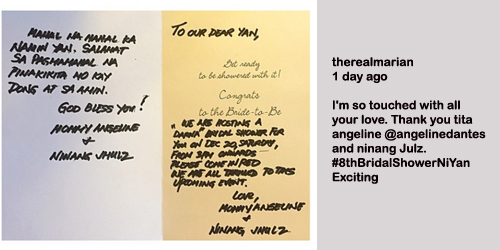 MAHAL NA MAHAL KA
NAMIN YAN. SALAMAT
SA PAGMAMAHAL NA
PINAKIKITA MO KAY
DONG AT SA AMIN.
GOD BLESS YOU!
MOMMY ANGELINE
&
NINANG JHULZ
TO OUR DEAR YAN,
Get ready
to be showered with it!
Congrats
to the Bride-to-Be
"WE ARE HOSTING A
BRIDAL SHOWER FOR
YOU ON DEC 20, SATURDAY,
FROM 3PM ONWARDS
PLEASE COME IN RED
WE ARE ALL THRILLED TO THIS
UPCOMING EVENT.
LOVE,
MOMMY ANGELINE
&
NINANG JHULZ
therealmarian
1 day ago
I'm so touched with all
your love. Thank you tita
angeline @angelinedantes
and ninang Julz.
#8thBridalShowerNiYan
Exciting